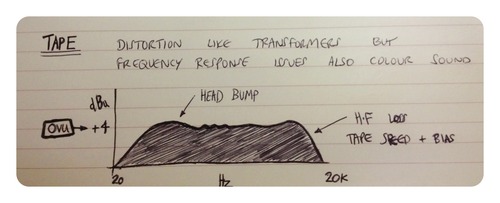 TAPE
DISTORTION LIKE TRANSFORMERS BUT
FREQUENCY RESPONSE ISSUES ALSO COLOUR SOUND
dBu
HEAD BUMP
0VU
+4
H.F LOSS
TAPE SPEED + BIAS
20
Hz
20K